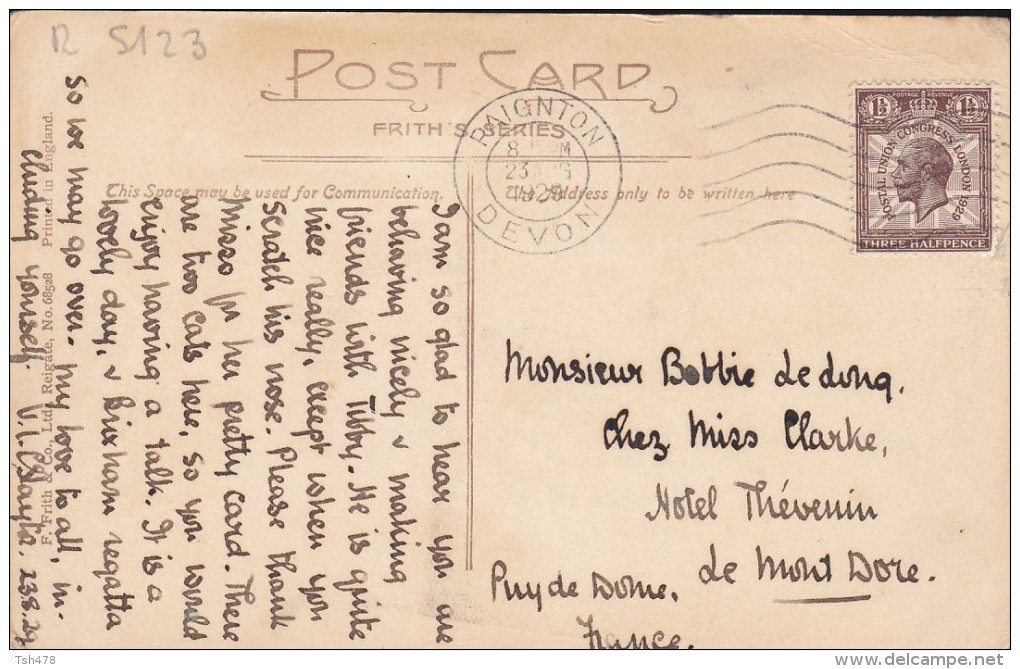 R 5123
POST CARD
FRITH'S SERIES
This Space may be used for Communication.
The Address only to be written here
PAIGNTON
8 PM
23 AUG
1929
DEVON
1½ POSTAGE REVENUE 1½
POSTAL UNION CONGRESS LONDON 1929
THREE HALFPENCE
I am so glad to hear you are
behaving nicely & making
friends with Tibby. He is quite
nice really, except when you
scratch his nose. Please thank
Misso for her pretty card. There
are two cats here, so you would
enjoy having a talk. It is a
lovely day, & Brixham regatta
so we may go over. My love to all, in-
cluding yourself. V.L. 23.8.29
F. Frith & Co., Ltd., Reigate, No. 68528 Printed in England.
Monsieur Bobbie Ledong.
Chez Miss Clarke,
Hotel Thévenin
Le Mont Dore.
Puy de Dome.
France.
Tsh478
delcampe.net